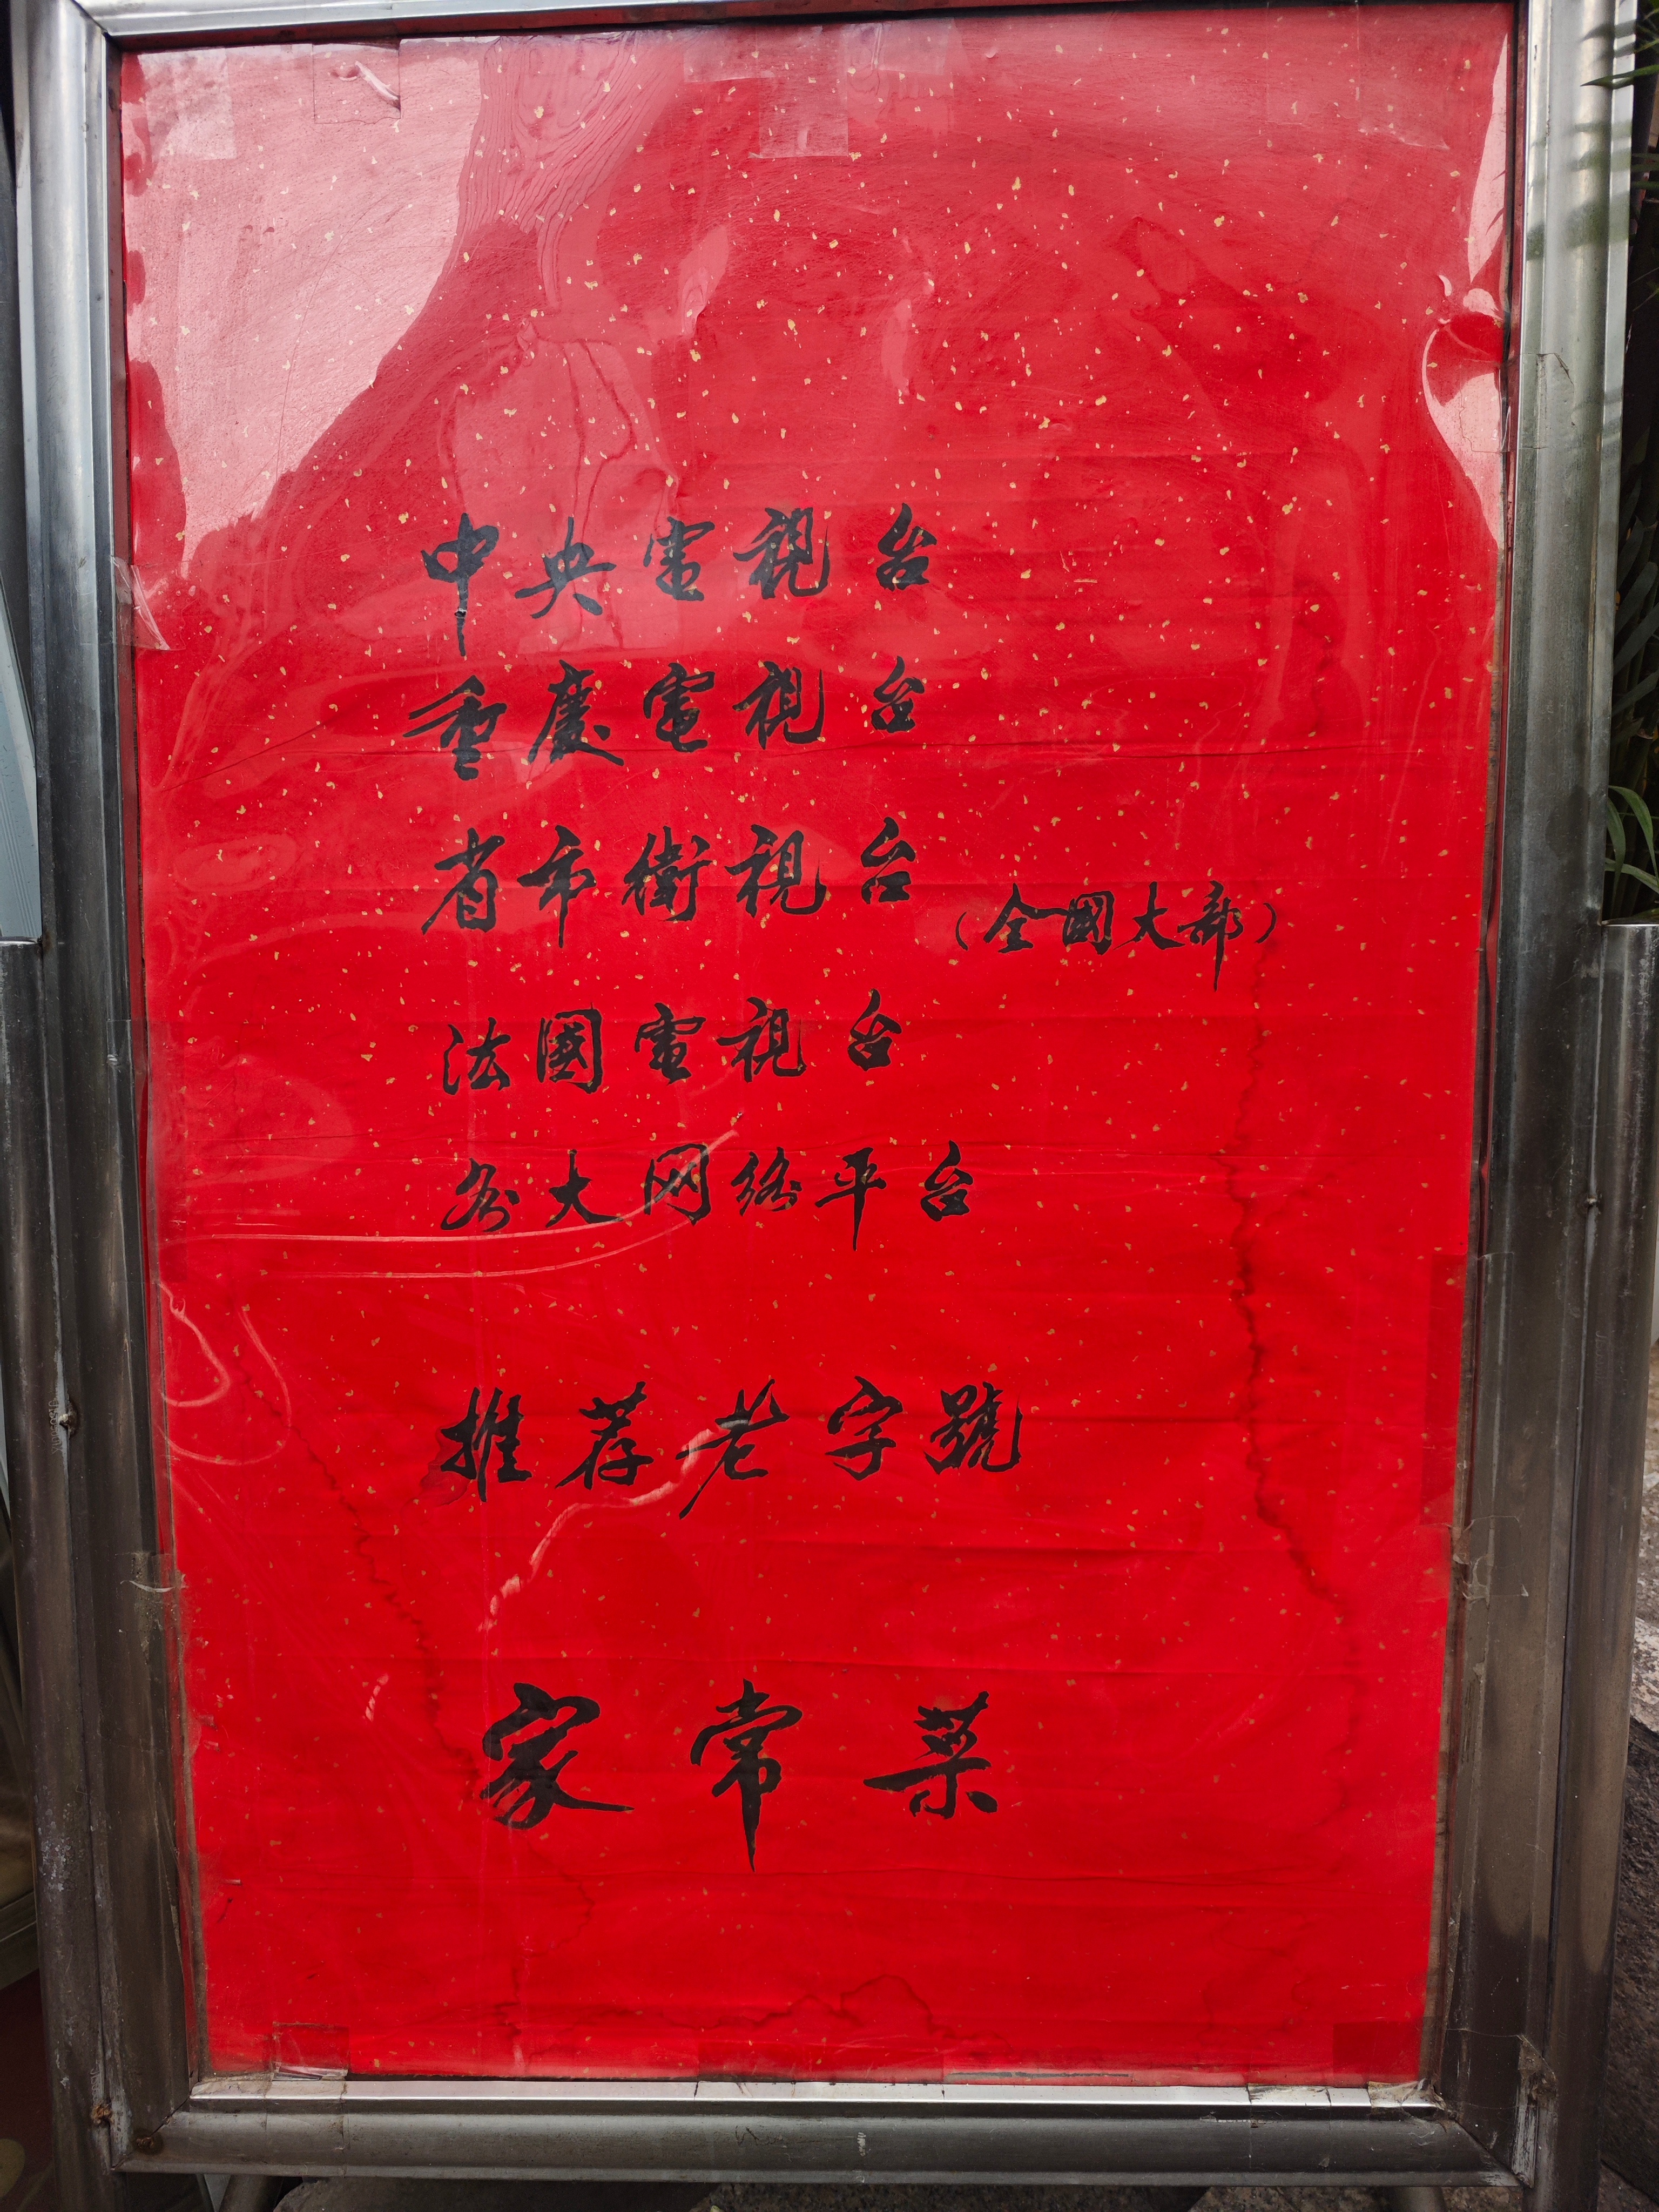 中央電視台
重慶電視台
省市衛視台（全國大部）
法國電視台
各大网络平台
推荐老字號
家常菜